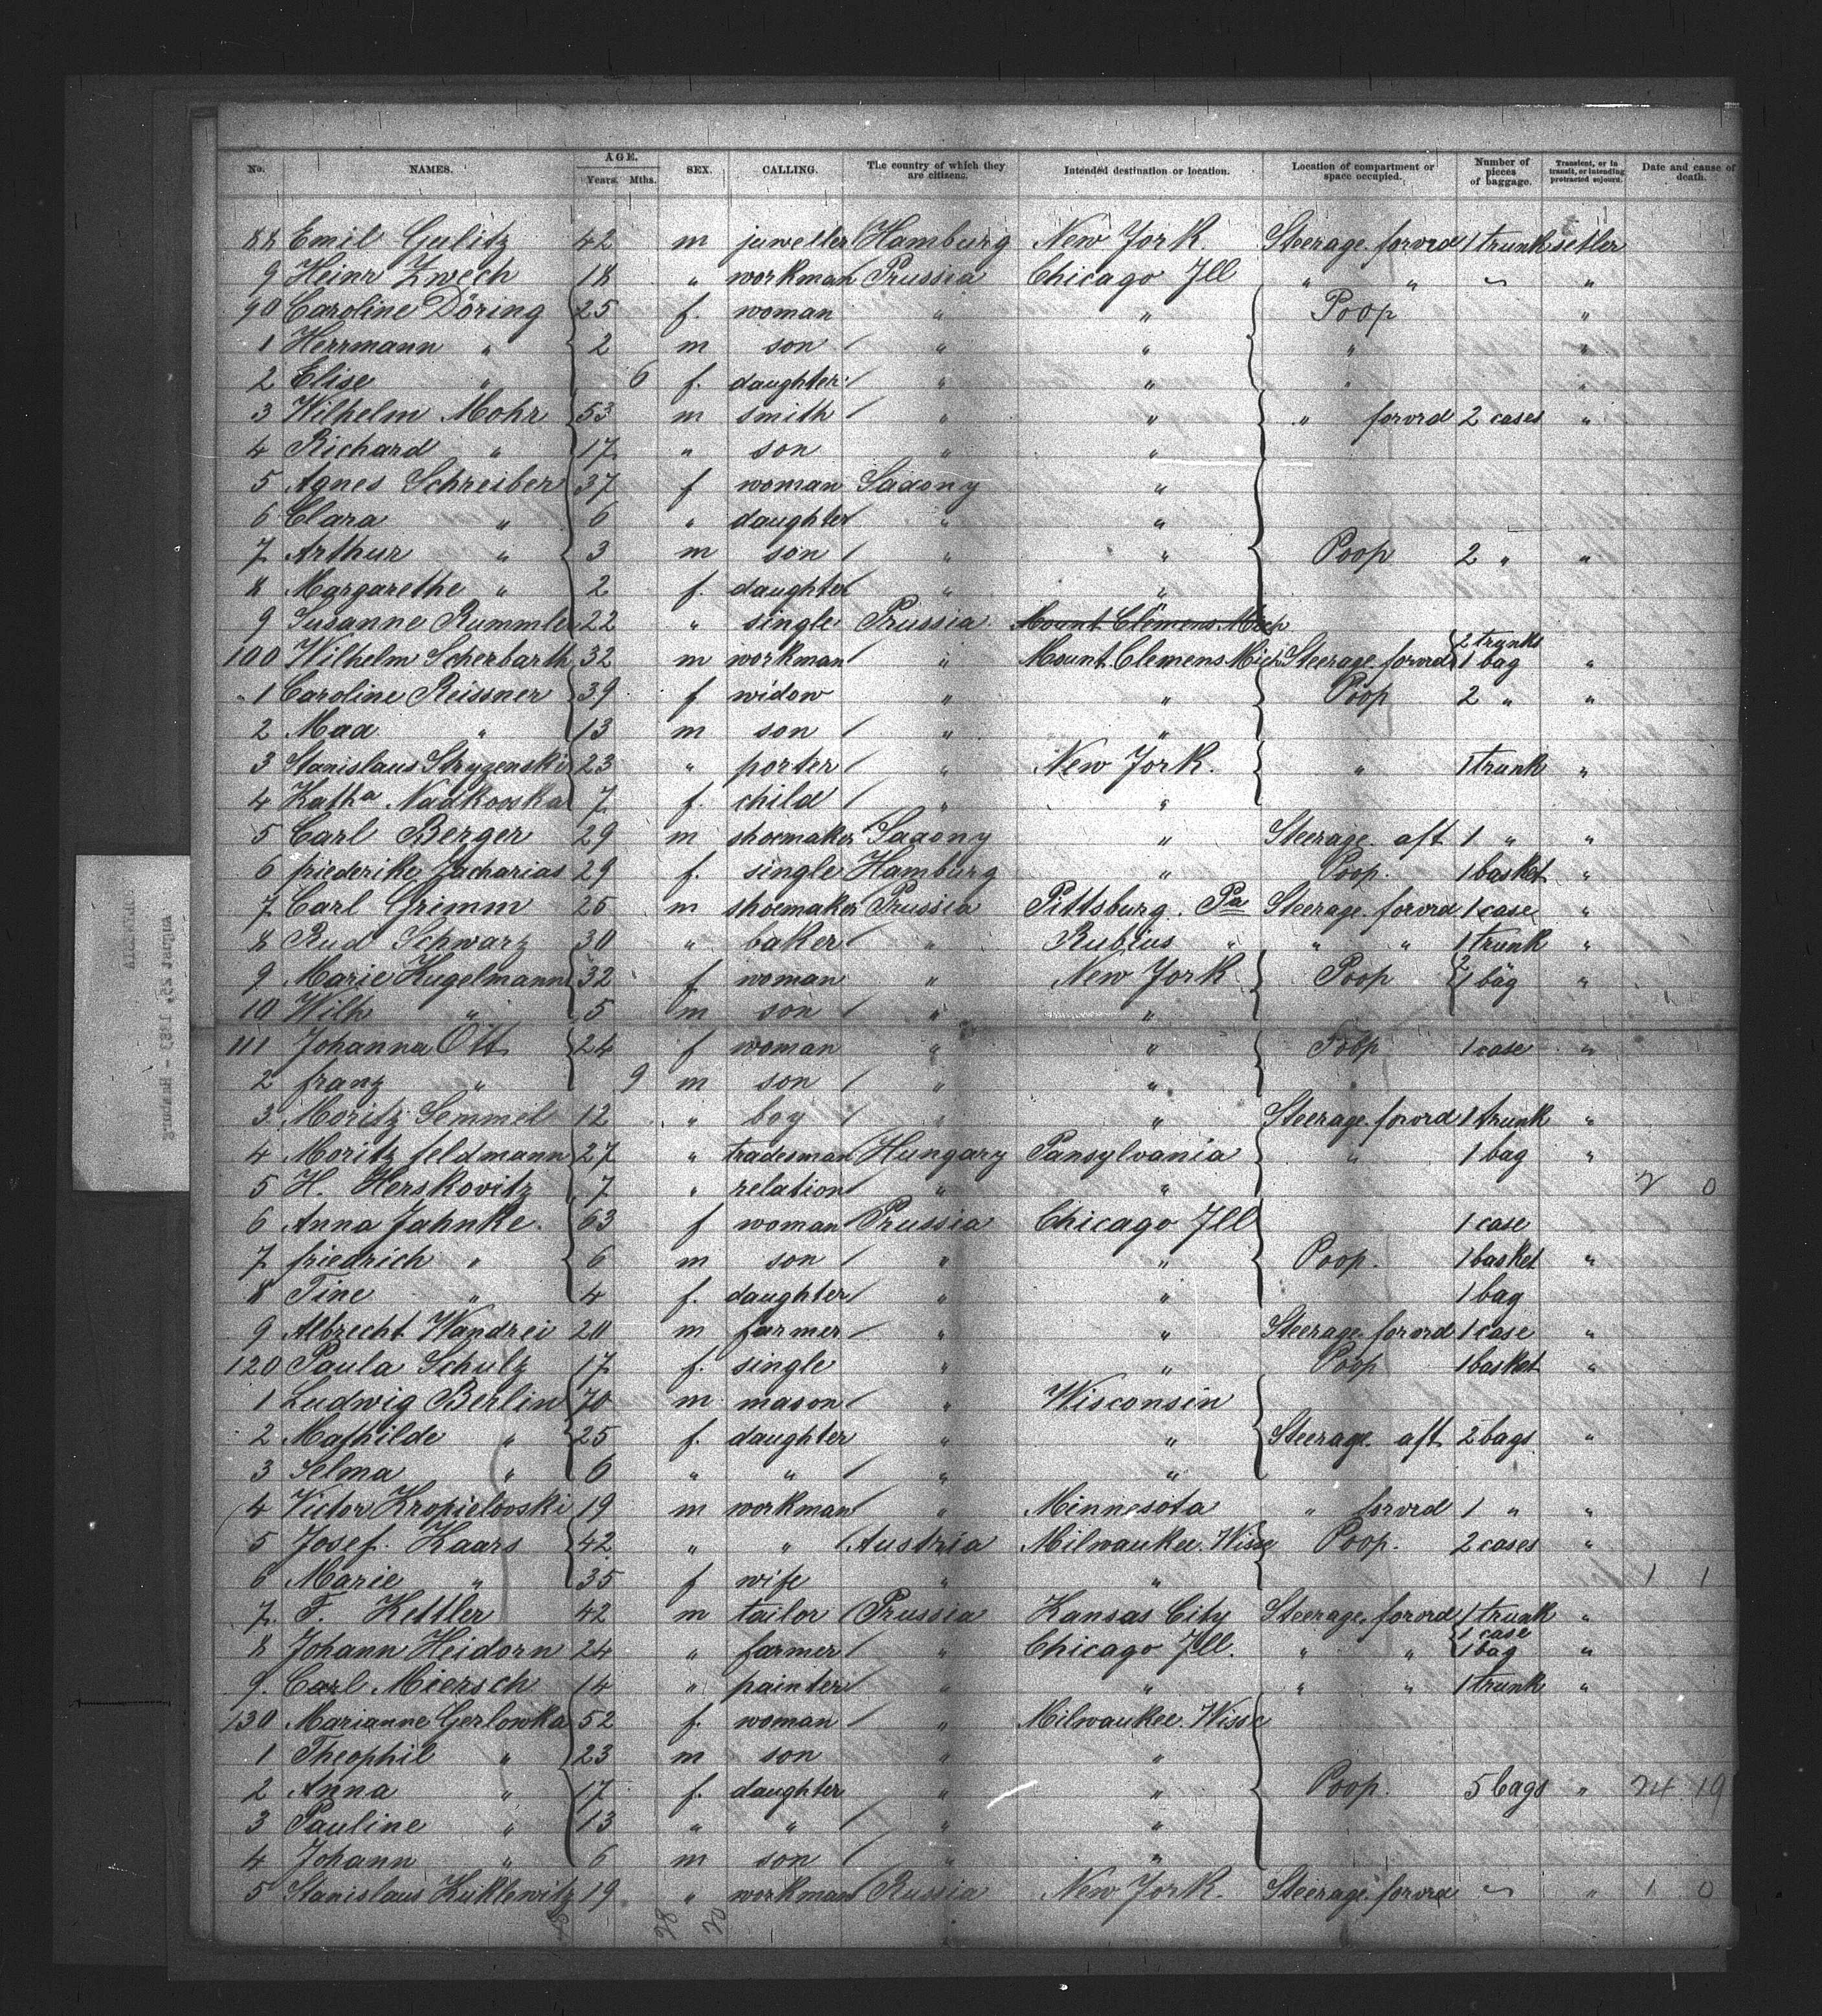 No. NAMES. AGE. Years. Mths. SEX. CALLING. The country of which they are citizens. Intended destination or location. Location of compartment or space occupied. Number of pieces of baggage. Transient, or in transit, or intending protracted sojourn. Date and cause of death.
88 Emil Gulitz 42 m juweller Hamburg New York Steerage forvrd 1 trunk setler
9 Heinr Zwech 18 " workman Prussia Chicago Ill " " "
90 Caroline Döring 25 f. woman " " Poop "
1 Herrmann " 2 m son " " " "
2 Elise " 6 f. daughter " " " "
3 Wilhelm Mohr 53 m smith " " " forvrd 2 cases "
4 Richard " 17 " son " "
5 Agnes Schreiber 37 f woman Saxony "
6 Clara " 6 " daughter " "
7 Arthur " 3 m son " " Poop 2 " "
8 Margarethe " 2 f. daughter " "
9 Susanne Rummler 22 " single Prussia Mount Clemens Mich
100 Wilhelm Scherbarth 32 m workman " Mount Clemens Mich Steerage forvrd 2 trunks 1 bag "
1 Caroline Reissner 39 f widow " " Poop 2 " "
2 Max " 13 m son " "
3 Stanislaus Stryzenski 23 " porter " New York. " 1 trunk "
4 Katha Nadkowska 7 f. child " "
5 Carl Berger 29 m shoemaker Saxony " Steerage aft 1 " "
6 friederike Zacharias 29 f. single Hamburg " Poop. 1 basket "
7 Carl Grimm 26 m shoemaker Prussia Pittsburg. Pa Steerage forvrd 1 case "
8 Rud Schwarz 30 " baker " Rubius " " " 1 trunk "
9 Marie Kugelmann 32 f woman " New York Poop 2 " 1 bag "
10 Wilh " 5 m son " "
111 Johanna Ott 24 f woman " " Poop 1 case "
2 franz " 9 m son " "
3 Moritz Semmel 12 " boy " " Steerage forvrd 1 trunk "
4 Moritz feldmann 27 " tradesman Hungary Pansylvania " 1 bag "
5 H. Herskovitz 7 " relation " " 2 0
6 Anna Jahnke. 63 f woman Prussia Chicago Ill 1 case
7 friedrich " 6 m son " " Poop. 1 basket "
8 Tine " 4 f. daughter " " 1 bag
9 Albrecht Wandrei 20 m farmer " " Steerage forvrd 1 case "
120 Paula Schulz 17 f. single " " Poop 1 basket "
1 Ludwig Berlin 70 m mason " Wisconsin
2 Mathilde " 25 f. daughter " " Steerage aft 2 bags "
3 Selma " 6 " " " "
4 Victor Kropielowski 19 m workman " Minnesota " forvrd 1 " "
5 Josef Kaars 42 " " Austria Milwaukee. Wissc Poop. 2 cases "
6 Marie " 35 f wife " " 1 1
7. F. Kettler 42 m tailor Prussia Kansas City Steerage forvrd 1 trunk "
8 Johann Heidorn 24 " farmer " Chicago Ill. " " 1 case 1 bag "
9. Carl Miersch 14 " painter " " " " 1 trunk "
130 Marianne Gerlowka 52 f. woman " Milwaukee. Wissc
1 Theophil " 23 m son " "
2 Anna " 17 f. daughter " " Poop. 5 bags " 24 19
3 Pauline " 13 " " " "
4 Johann " 6 m son " "
5 Stanislaus Kuklewitz 19 " workman Russia New York. Steerage forvrd " 1 0
28 20